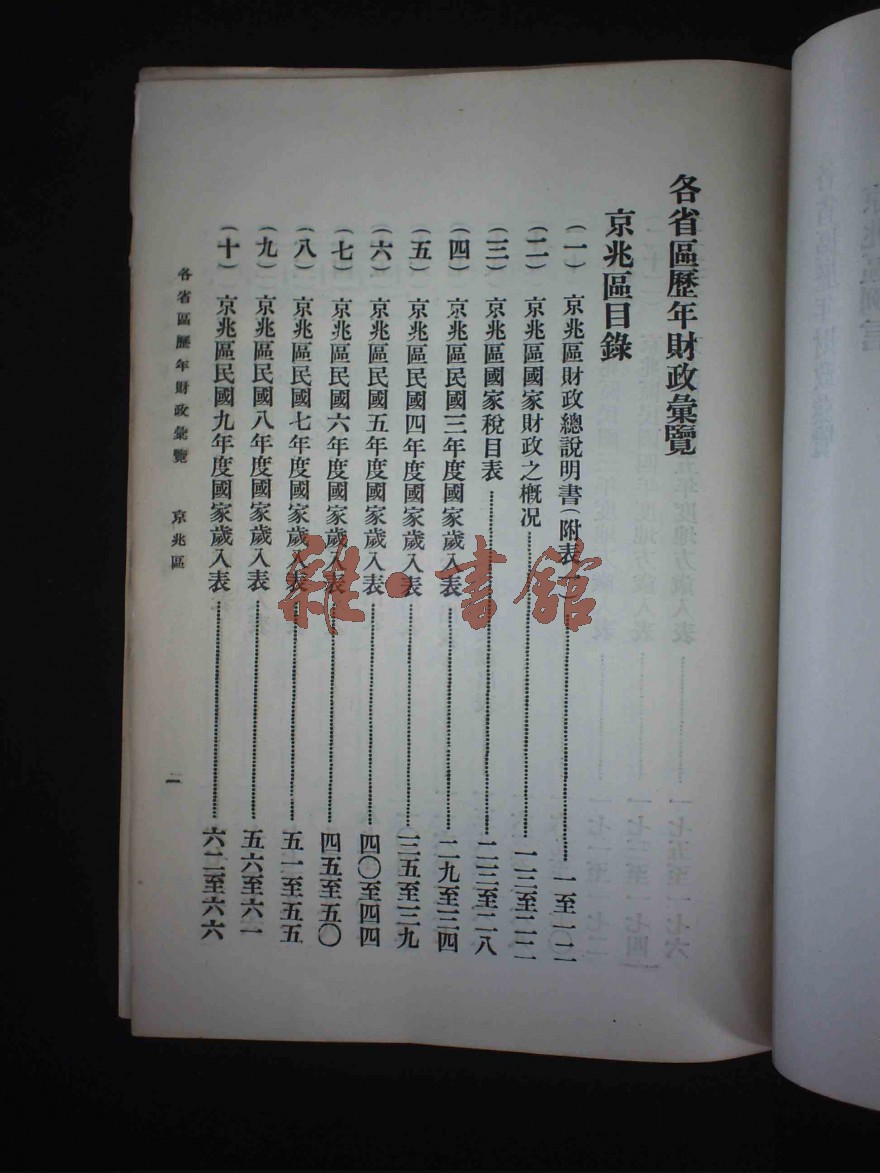 各省區歷年財政彙覽
京兆區目錄
(一) 京兆區財政總說明書(附表)……一至一二
(二) 京兆區國家財政之概況……一三至二二
(三) 京兆區國家稅目表……二三至二八
(四) 京兆區民國三年度國家歲入表……二九至三四
(五) 京兆區民國四年度國家歲入表……三五至三九
(六) 京兆區民國五年度國家歲入表……四〇至四四
(七) 京兆區民國六年度國家歲入表……四五至五〇
(八) 京兆區民國七年度國家歲入表……五一至五五
(九) 京兆區民國八年度國家歲入表……五六至六一
(十) 京兆區民國九年度國家歲入表……六二至六六
各省區歷年財政彙覽 京兆區 二
雜·書館